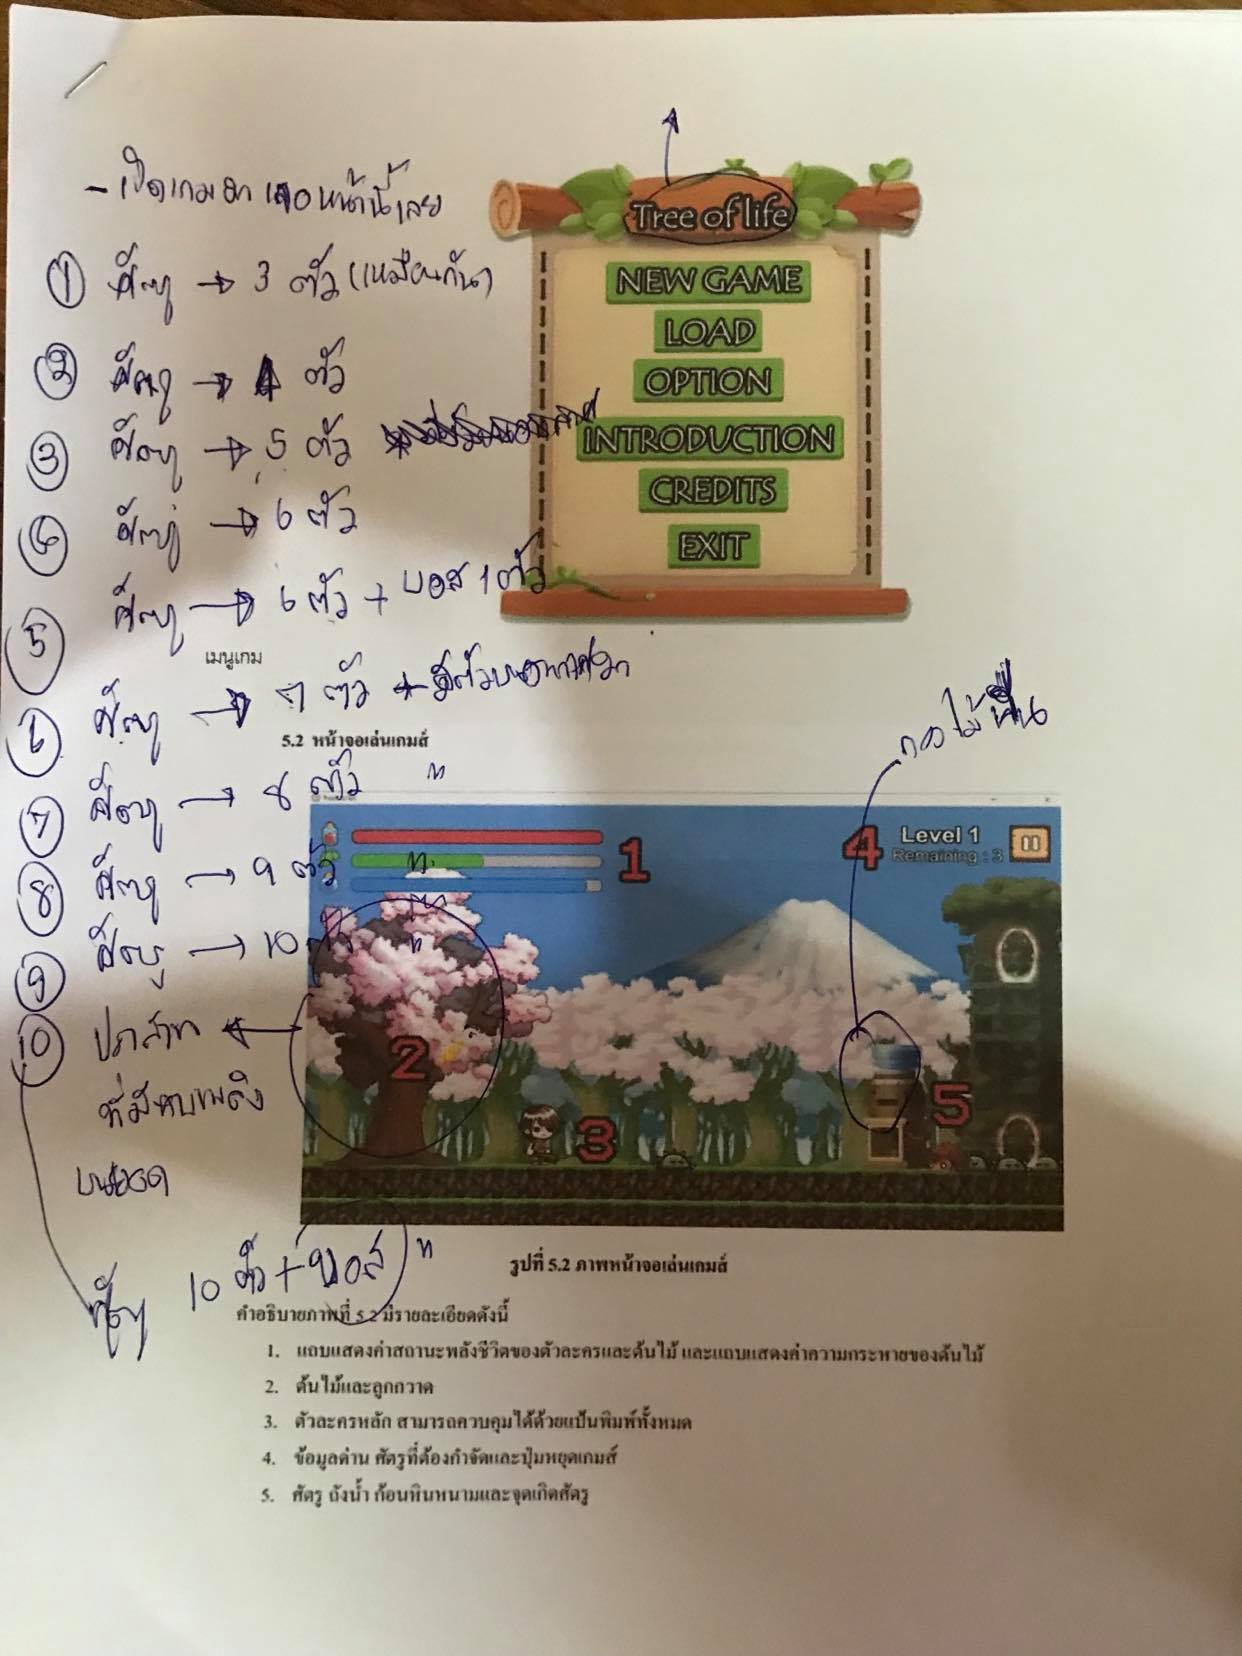 - เปิดเกมมา เจอหน้านี้เลย
Tree of life
NEW GAME
LOAD
OPTION
INTRODUCTION
CREDITS
EXIT
① ศัตรู → 3 ตัว (เหมือนกัน)
② ศัตรู → 4 ตัว
③ ศัตรู → 5 ตัว
④ ศัตรู → 6 ตัว
⑤ ศัตรู → 6 ตัว + บอส 1 ตัว
เมนูเกม
⑥ ศัตรู → 7 ตัว +
5.2 หน้าจอเล่นเกมส์
กองไม้ฟืน
⑦ ศัตรู → 8 ตัว "
⑧ ศัตรู → 9 ตัว "
⑨ ศัตรู → 10 ตัว "
⑩ ปราสาท
ที่มีคบเพลิง
บนยอด
1
4
Level 1
Remaining : 3
2
3
5
ศัตรู 10 ตัว + บอส "
รูปที่ 5.2 ภาพหน้าจอเล่นเกมส์
คำอธิบายภาพที่ 5.2 มีรายละเอียดดังนี้
1. แถบแสดงค่าสถานะพลังชีวิตของตัวละครและต้นไม้ และแถบแสดงค่าความกระหายของต้นไม้
2. ต้นไม้และลูกกวาด
3. ตัวละครหลัก สามารถควบคุมได้ด้วยแป้นพิมพ์ทั้งหมด
4. ข้อมูลด่าน ศัตรูที่ต้องกำจัดและปุ่มหยุดเกมส์
5. ศัตรู ถังน้ำ ก้อนหินหนามและจุดเกิดศัตรู